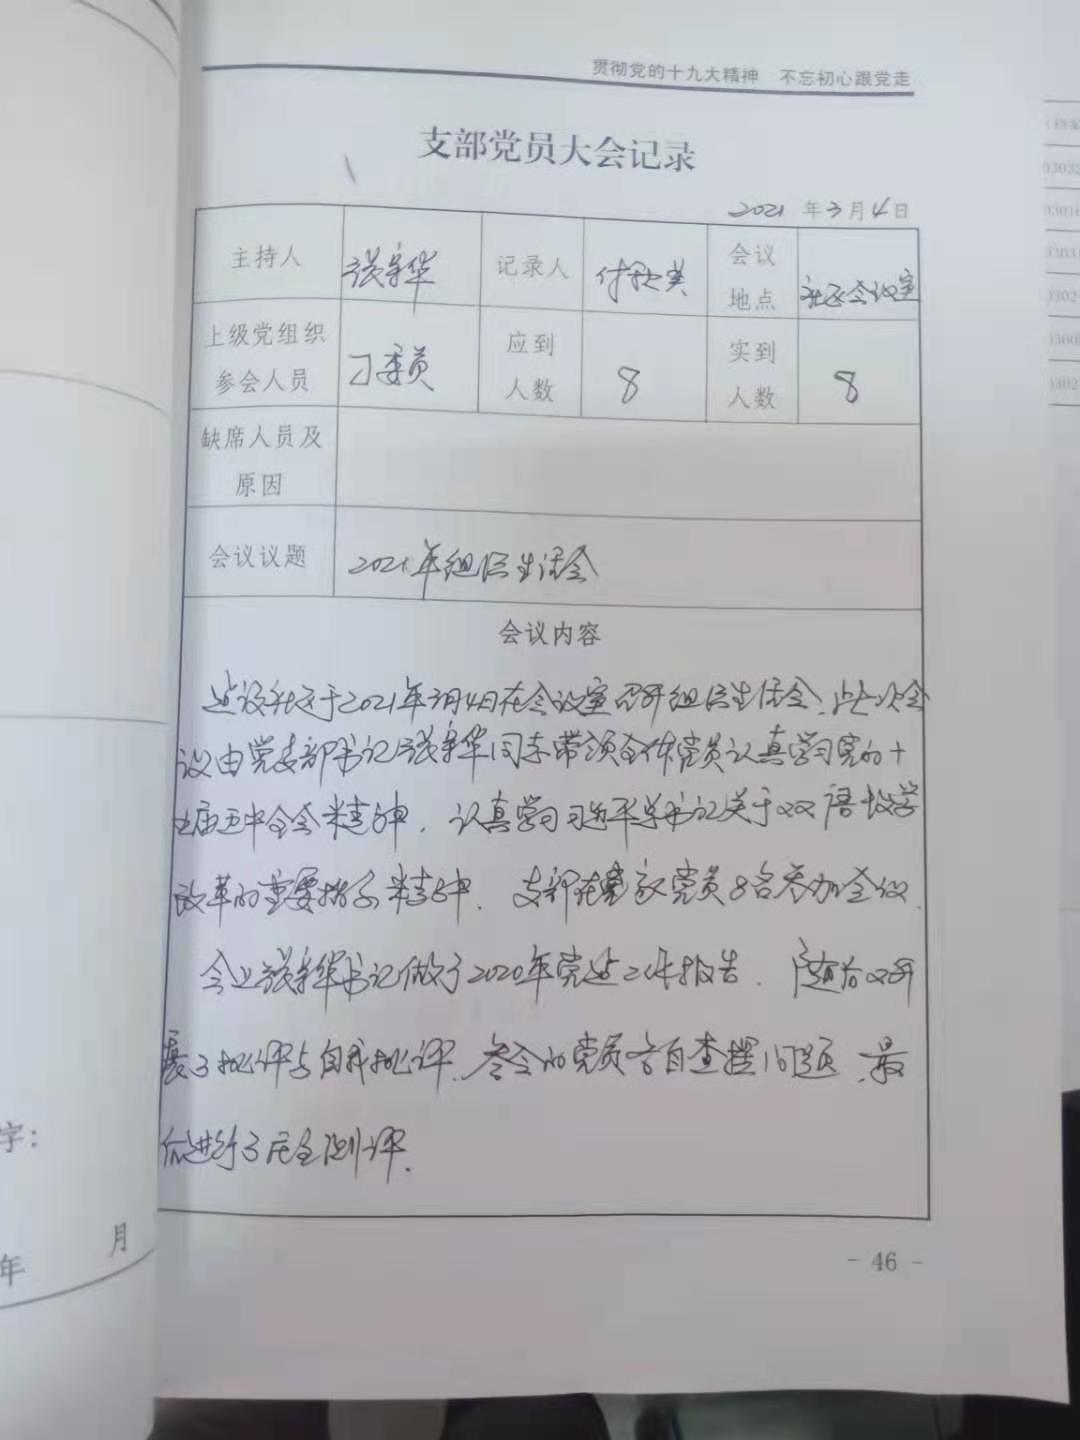 贯彻党的十九大精神 不忘初心跟党走
支部党员大会记录
2021 年 3 月 4 日
主持人 张宗华 记录人 付 美 会议地点 社区会议室
上级党组织参会人员 丁委员 应到人数 8 实到人数 8
缺席人员及原因
会议议题 2021年组织生活会
会议内容
建设社区于2021年3月4日在会议室召开组织生活会、此次会
议由党支部书记张宗华同志带领全体党员认真学习党的十
九届五中全会精神，认真学习习近平总书记关于双语教学
改革的重要指示精神．支部在 党员8名参加会议．
会上张宗华书记做了2020年党建工作报告．随后又开
展了批评与自我批评．参会的党员各自查摆问题．最
后进行了民主测评．
- 46 -
字：
年 月
03032
03016